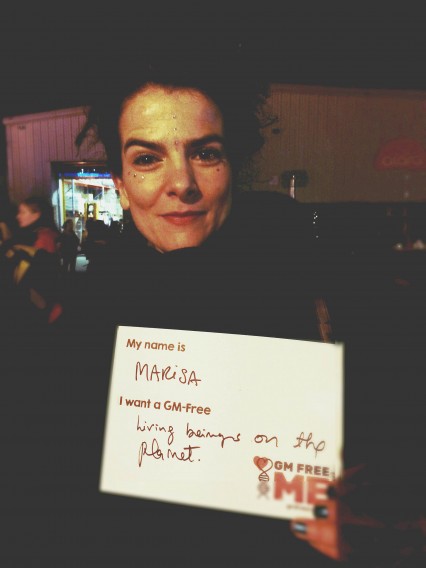 My name is
MARiSA
I want a GM-Free
Living beings on the
planet.
GM FREE
ME